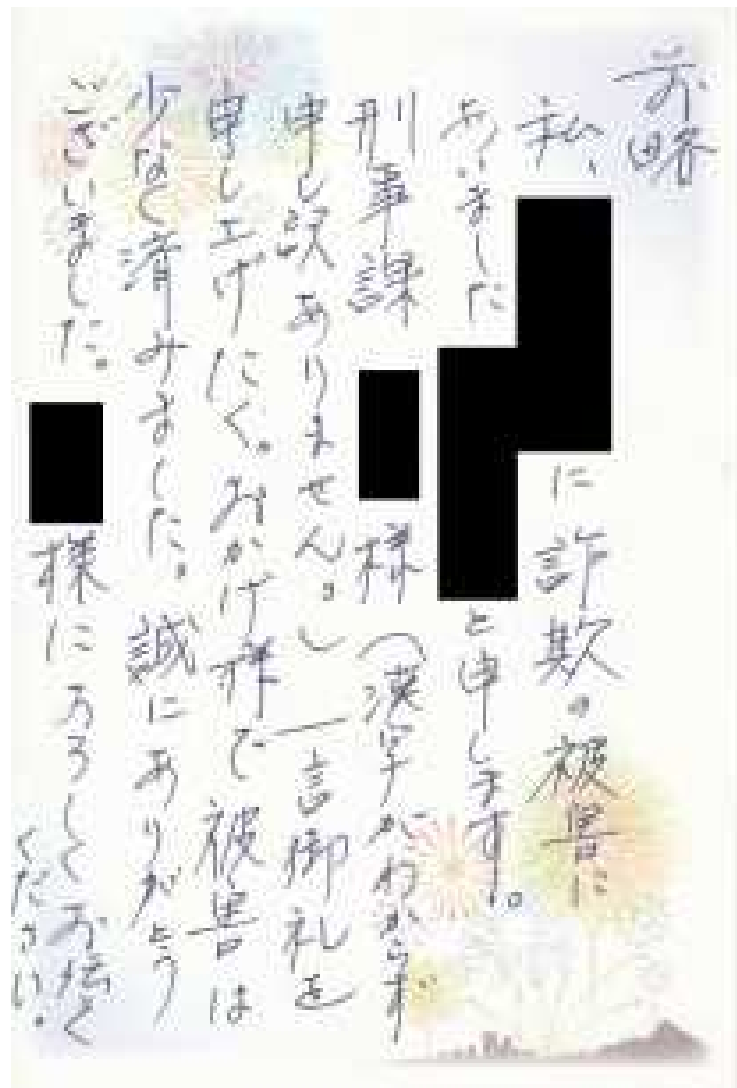 前略
私、
に詐欺の被害に
あいました
と申します。
刑事課
様(漢字がわからず
申し訳ありません。)一言御礼を
申し上げたく。おかげ様で被害は
少なく済みました。誠にありがとう
ございました。
様によろしくお伝え
ください。